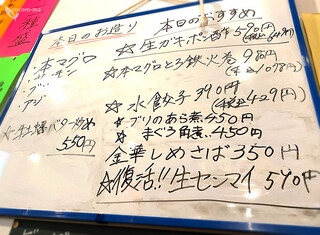 本日のお造り
・本マグロ
・サーモン
・ブリ
・アジ
牡蠣バター炒め
550円
本日のおすすめ
☆生ガキポン酢590円
☆本マグロとろ鉄火巻 980円
(税込1078円)
☆水餃子390円
(税込429円)
★ブリのあら煮450円
★まぐろ角煮450円
金華しめさば350円
☆復活!!生センマイ590円